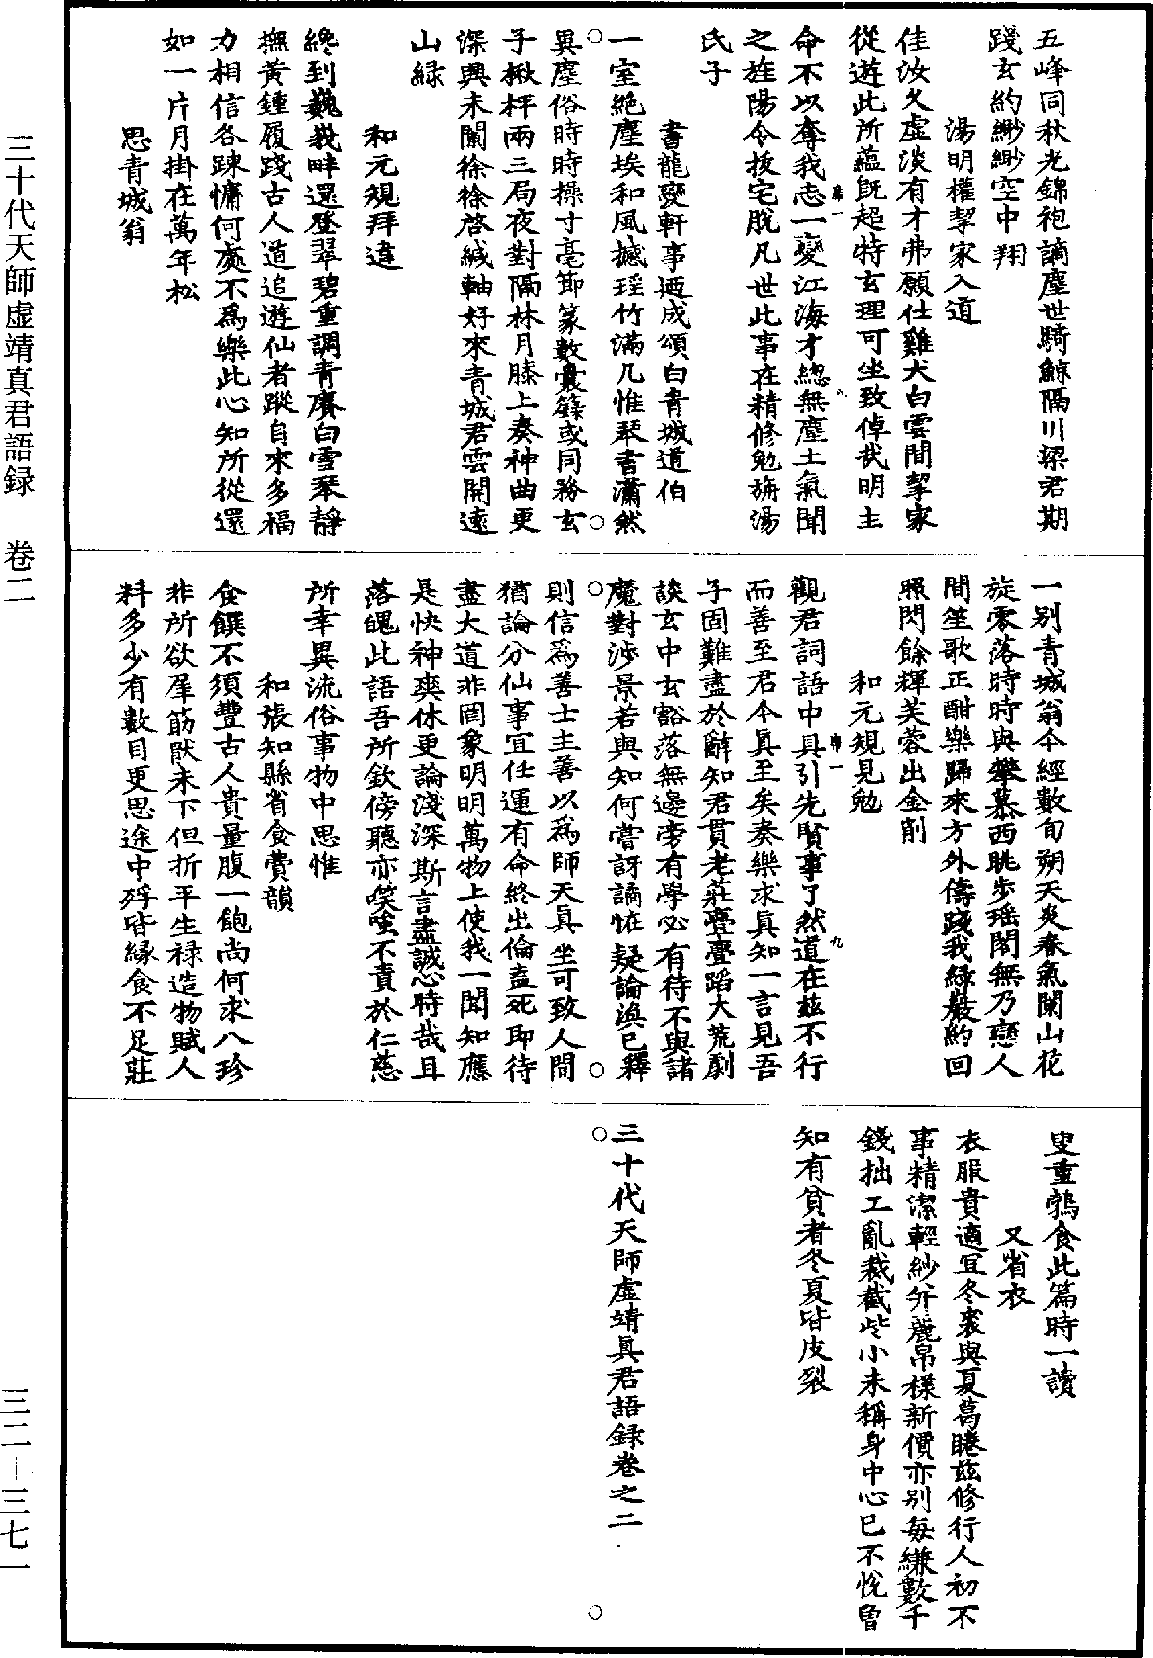 五峰同秋光錦袍謫塵世騎鯨隔川梁君期
踐玄約緲緲空中翔
湯明權挈家入道
佳汝久虛淡有才弗願仕雞犬白雲間挈家
從遊此所蘊旣超特玄理可坐致倬哉明主
命不以奪我志一變江海才總無塵土氣聞
之旌陽令拔宅脫凡世此事在精修勉旃湯
氏子
書龍變軒事迺成頌白青城道伯
一室絶塵埃和風撼瑤竹滿几惟琴書瀟然
異塵俗時時操寸毫節篆數囊籙或同務玄
子楸枰兩三局夜對隔林月膝上奏神曲更
深興未闌徐徐啓緘軸好來青城君雲開遠
山緑
和元規拜違
纔到巍峩畔還登翠碧重調青賡白雪琴靜
撫黃鍾履踐古人道追遊仙者蹤自來多福
力相信各踈慵何處不爲樂此心知所從還
如一片月掛在萬年松
思青城翁
一別青城翁今經數旬朔天炎春氣闌山花
旋零落時時與攀慕西眺步瑶閣無乃戀人
間笙歌正酣樂歸來方外儔踐我緑巖約回
照閃餘輝芙蓉出金削
和元規見勉
觀君詞語中具引先賢事了然道在玆不行
而善至君今眞至矣奏樂求眞知一言見吾
子固難盡於辭知君貫老莊亹亹蹈大荒劇
談玄中玄豁落無邊旁有學必有待不與諸
魔對渉景若與知何嘗訝譎恠疑論渙已釋
則信爲善士主善以爲師天眞坐可致人間
猶論分仙事宜任運有命終出倫盍死即待
盡大道非罔象明明萬物上使我一聞知應
是快神爽休更論淺深斯言盡誠心時哉且
落魄此語吾所欽傍聽亦嘆嗤不責於仁慈
所幸異流俗事物中思惟
和張知縣省食費韻
食饌不須豐古人貴量腹一飽尚何求八珍
非所欲犀筯猒未下但折平生禄造物賦人
料多少有數目更思途中殍皆緣食不足莊
叟重鶉食此篇時一讀
又省衣
衣服貴適宜冬裘與夏葛睠玆修行人初不
事精潔輕紗并麗帛樣新價亦別每縑數千
錢拙工亂裁截些小未稱身中心已不悅曾
知有貧者冬夏皆皮裂
三十代天師虛靖眞君語録卷之二
三十代天師虛靖真君語録　卷二
三二—三七一